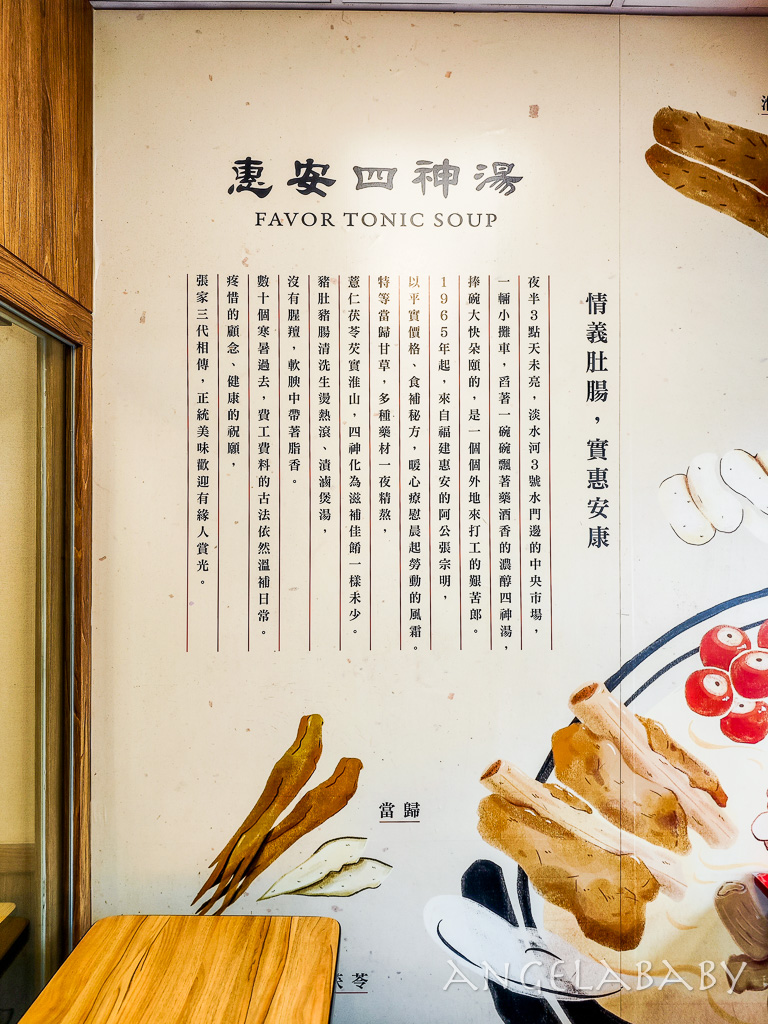 惠安四神湯
FAVOR TONIC SOUP
情義肚腸，實惠安康
夜半3點天未亮，淡水河3號水門邊的中央市場，
一輛小攤車，舀著一碗碗飄著藥酒香的濃醇四神湯，
捧碗大快朵頤的，是一個個外地來打工的艱苦郎。
1965年起，來自福建惠安的阿公張宗明，
以平實價格、食補秘方，暖心療慰晨起勞動的風霜。
特等當歸甘草，多種藥材一夜精熬，
薏仁茯苓芡實淮山，四神化為滋補佳餚一樣未少。
豬肚豬腸清洗生燙熱滾、漬滷煲湯，
沒有腥羶，軟腴中帶著脂香。
數十個寒暑過去，費工費料的古法依然溫補日常。
疼惜的顧念、健康的祝願，
張家三代相傳，正統美味歡迎有緣人賞光。
當歸
苓
ANGELABABY